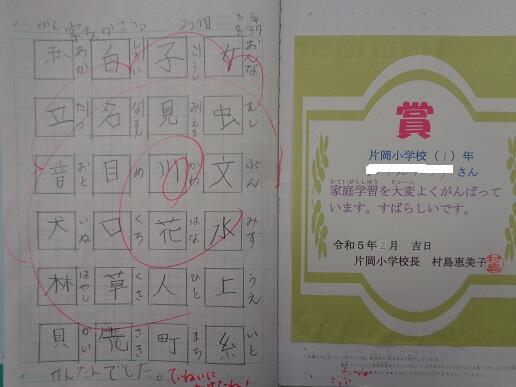 女 おんな
虫 むし
文 ぶん
水 みず
上 うえ
糸 いと
子
見 みえる
川 かわ
花 はな
人 ひと
町 まち
白
名
目 め
口 くち
草 くさ
先
赤 あか
立 たつ
音 おと
犬 いぬ
林 はやし
貝 かい
かんたんでした。
ていねいに
賞
片岡小学校（1）年
さん
かていがくしゅう たいへん
家庭学習を大変よくがんばって
います。すばらしいです。
令和５年2月 吉日
片岡小学校長 村島恵美子